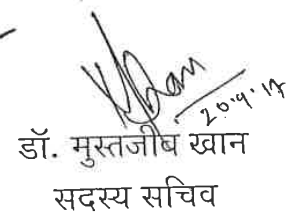 20.9.17
डॉ. मुस्तजीब खान
सदस्य सचिव